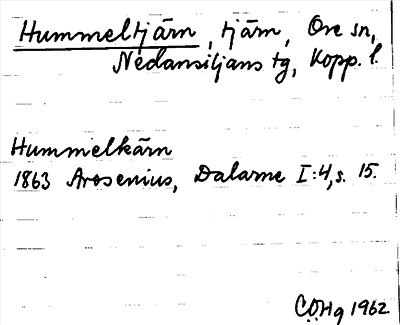 Hummeltjärn, tjärn, Ore sn,
Nedansiljans tg, Kopp. l.
Hummelkärn
1863 Arosenius, Dalarne I:4, s. 15.
C.Ö.Hg 1962